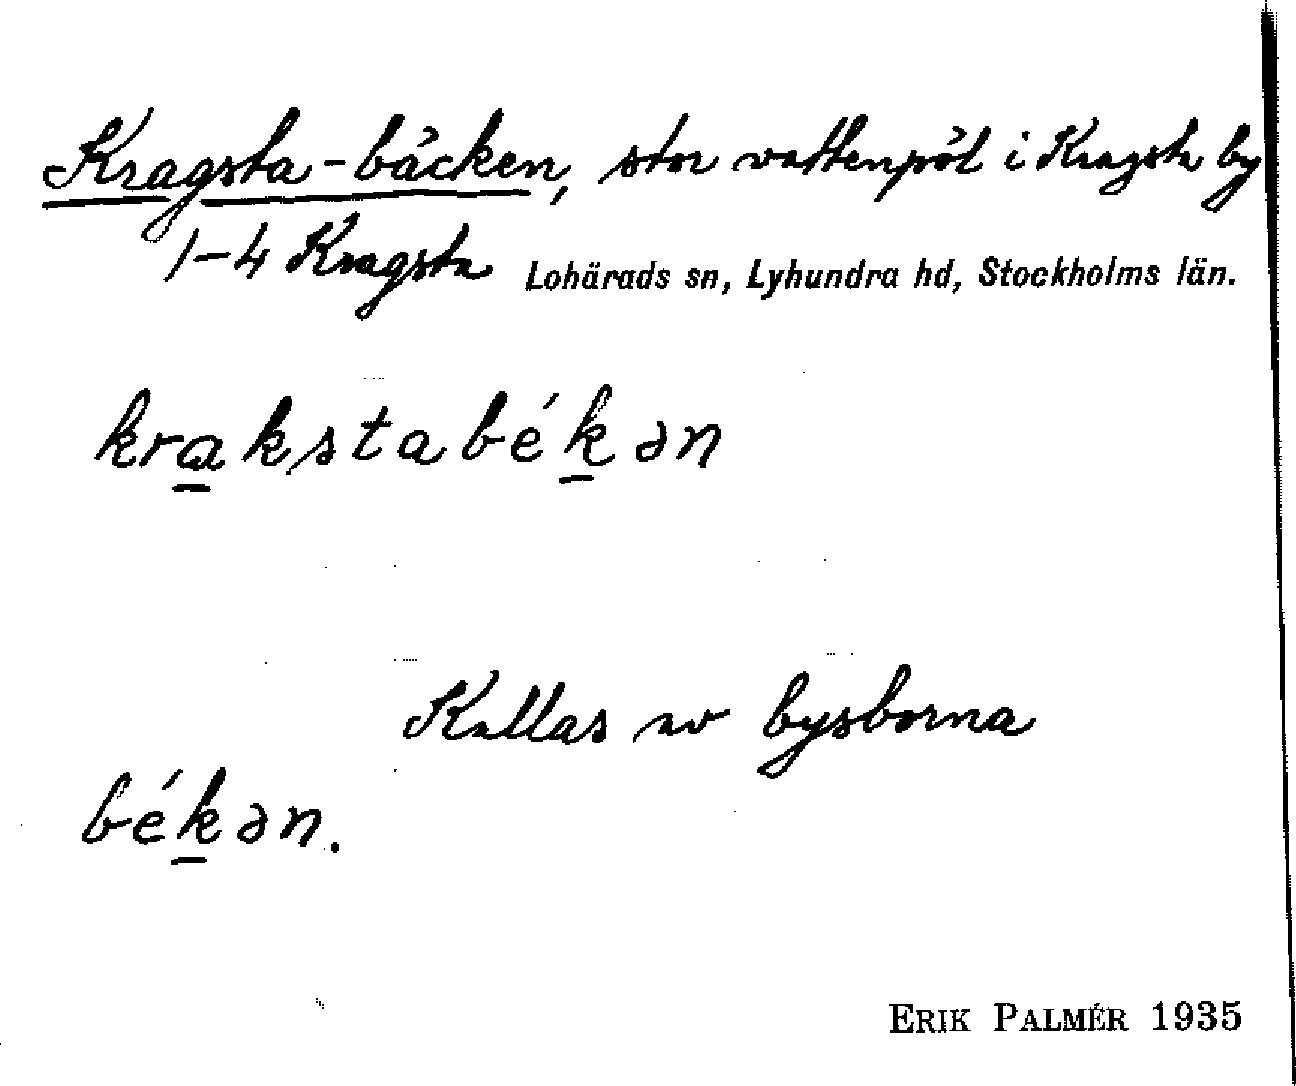 Kragsta-bäcken, stor vattenpöl i Kragsta by
1-4 Kragsta Lohärads sn, Lyhundra hd, Stockholms län.
kra̲kstabék̲ən
Kallas av bysborna
bék̲ən.
ERIK PALMÉR 1935